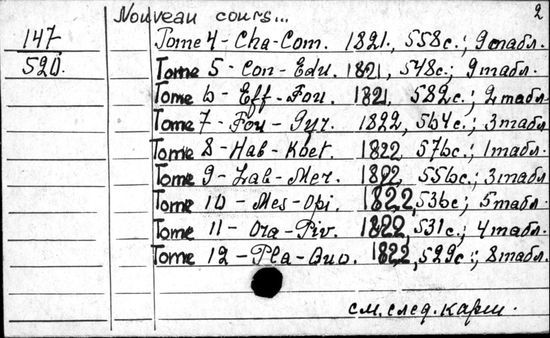 Nouveau cours... 2
147 Tome 4 - Cha-Com. 1821, 558с.; 9 табл.
520. Tome 5 - Con-Edu. 1821, 548с.; 9 табл.
Tome 6 - Eff-Fou. 1821, 582с.; 2 табл.
Tome 7 - Fou-Gyr. 1822, 564с.; 3 табл.
Tome 8 - Hab-Koet. 1822 576с.; 1 табл.
Tome 9 - Lab-Mer. 1822, 556с.; 3 табл.
Tome 10 - Mes-Opi. 1822, 536с.; 5 табл.
Tome 11 - Ora-Piv. 1822, 531с.; 4 табл.
Tome 12 - Pla-Quo. 1822, 529с.; 8 табл.
см. след. карт.